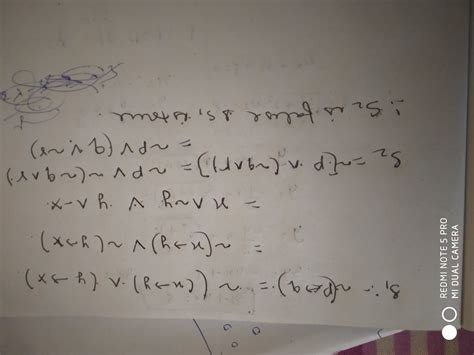 S₁ : ~(p↔q) = ~((x→y) ∧ (y→x))
= ~(x→y) ∨ ~(y→x)
= x∧~y ∨ y∧~x
S₂ = ~[p ∨ (~q∨r)] = ~p ∧ ~(~q∨r)
= ~p ∧ (q ∧ ~r)
∴ S₂ is false & S₁ is true
REDMI NOTE 5 PRO
MI DUAL CAMERA